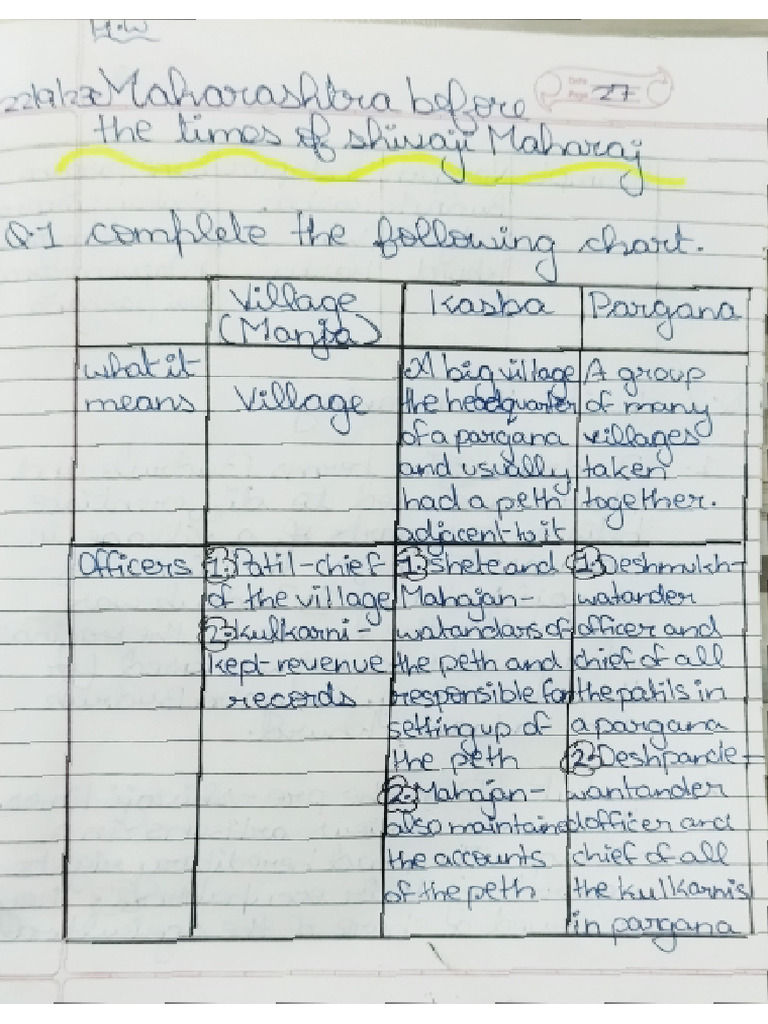 H.W
Date
Page 27
Maharashtra before
the times of Shivaji Maharaj
Q.1 complete the following chart.
Village
(Manja)
Kasba
Pargana
what it
means
Village
A big village
the headquarter
of a pargana
and usually
had a peth
adjacent to it
A group
of many
villages
taken
together.
Officers
1. Patil-chief
of the village
2. Kulkarni -
kept revenue
records
1. Shete and
Mahajan -
watandars of
the peth and
responsible for
setting up of
the peth
2. Mahajan -
also maintained
the accounts
of the peth
1. Deshmukh-
watander
officer and
chief of all
the patils in
a pargana
2. Deshpande -
wantander
officer and
chief of all
the kulkarnis
in pargana